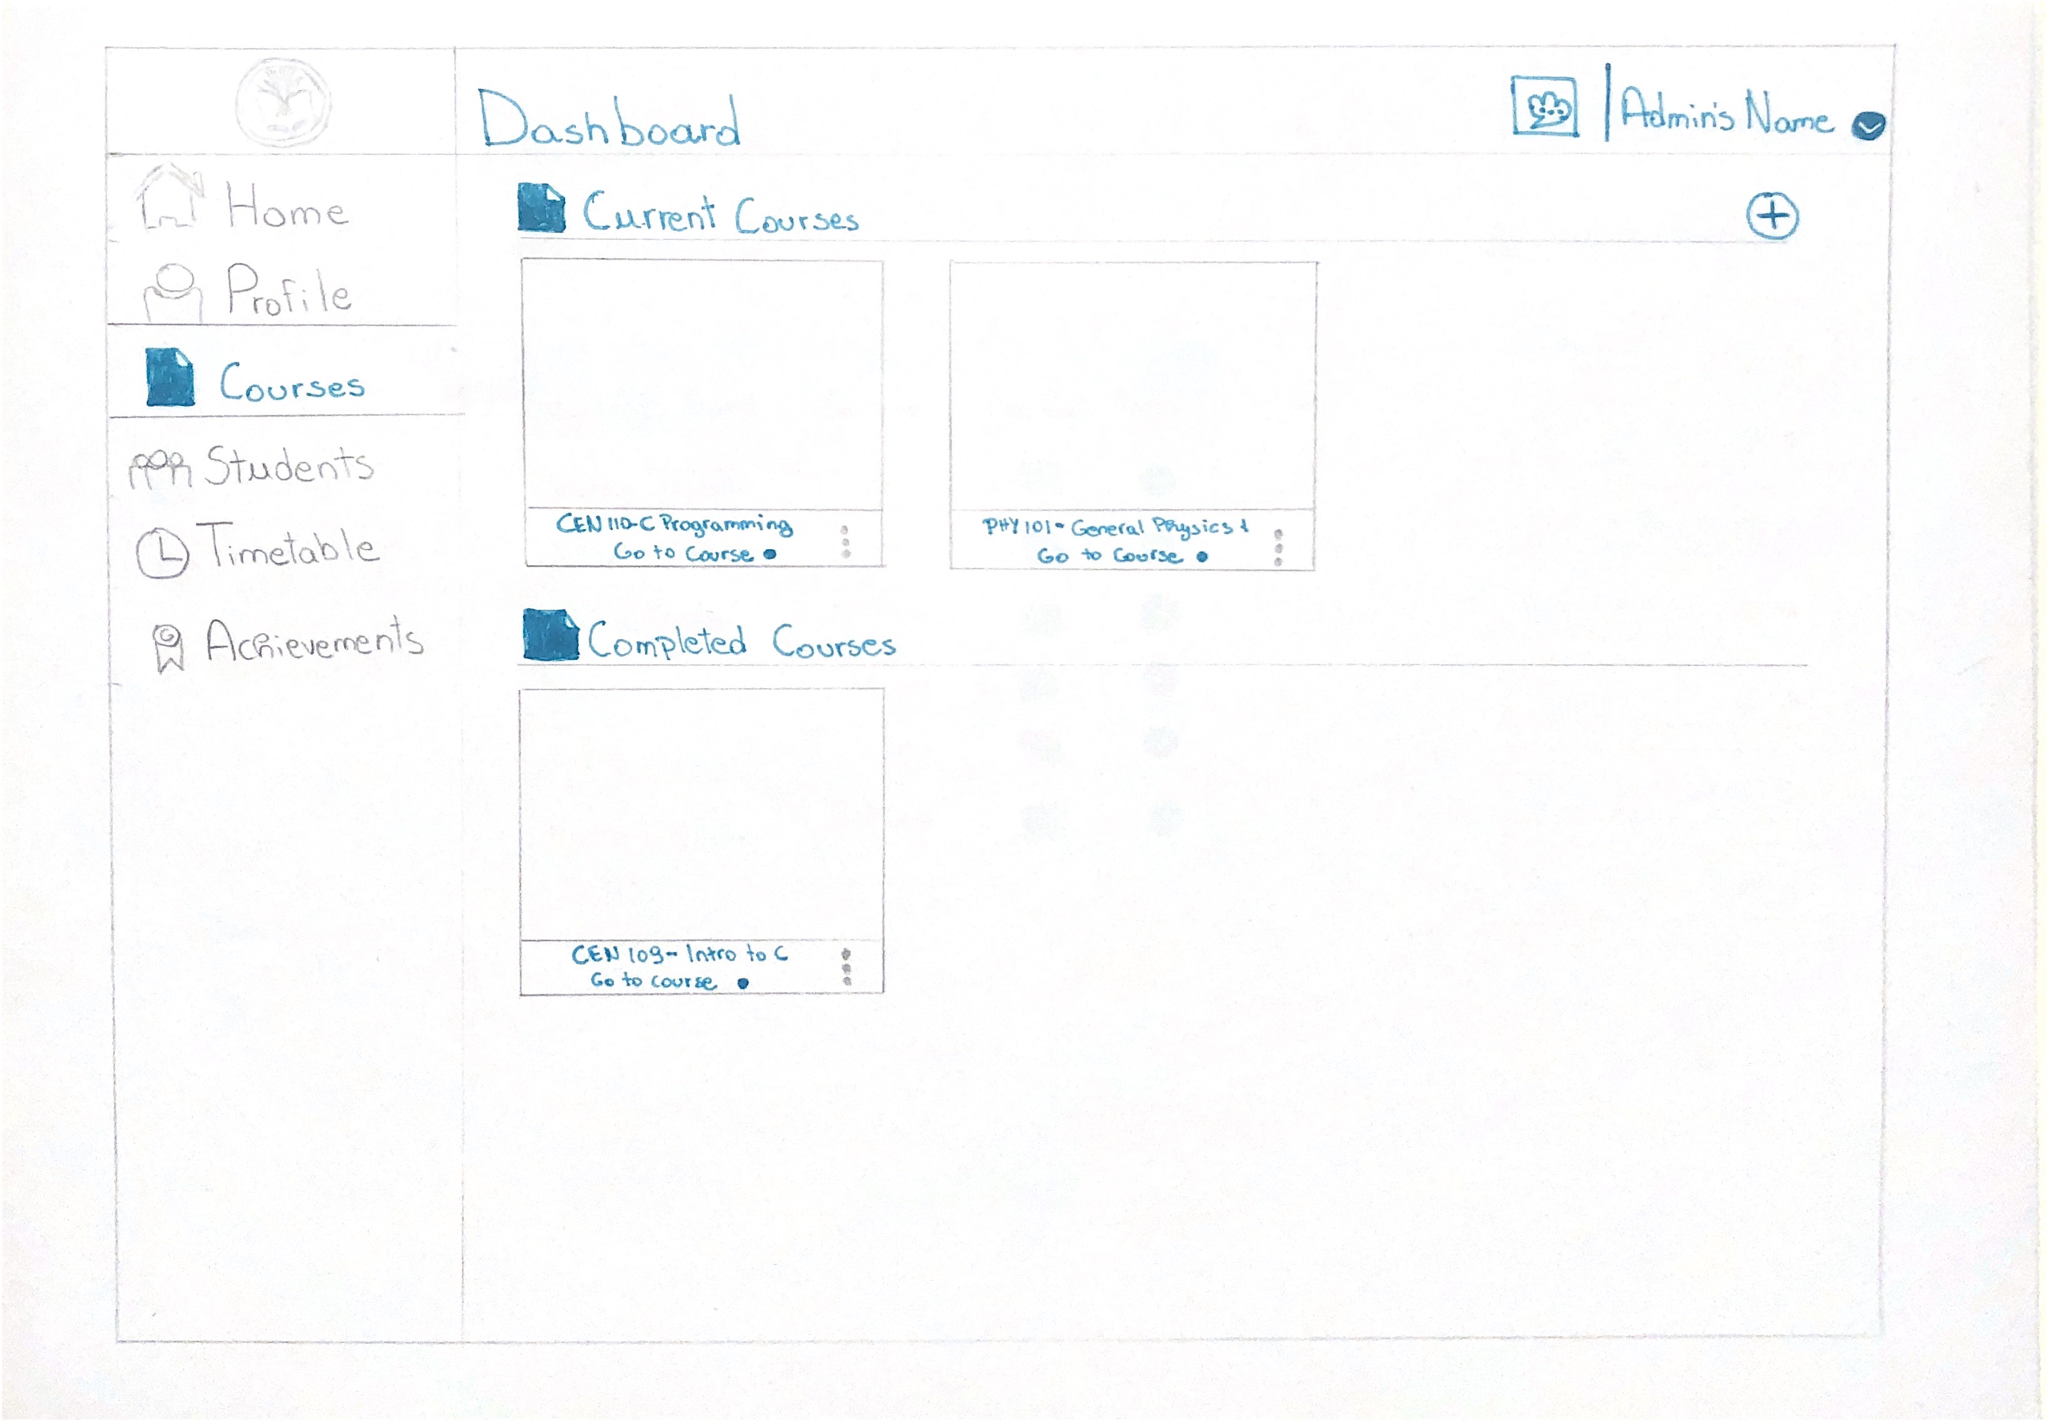 Dashboard
Admin's Name
Home
Profile
Courses
Students
Timetable
Achievements
Current Courses
CEN 110-C Programming
Go to Course
PHY101- General Physics 1
Go to Course
Completed Courses
CEN 109- Intro to C
Go to course